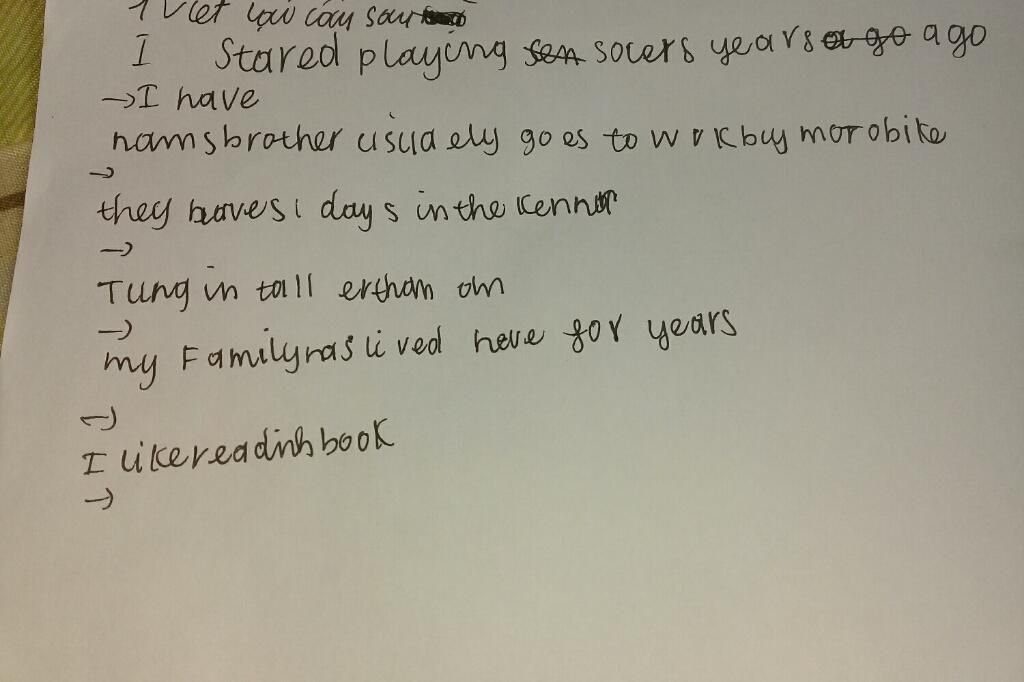 1 Viet lại câu sau
I Stared playing socers years ago
→I have
namsbrother usuaely goes to work buy morobike
→
they haves i days in the
→
Tung in tall erthan
→
my Familyhas lived here for years
→
I likereadinhbook
→